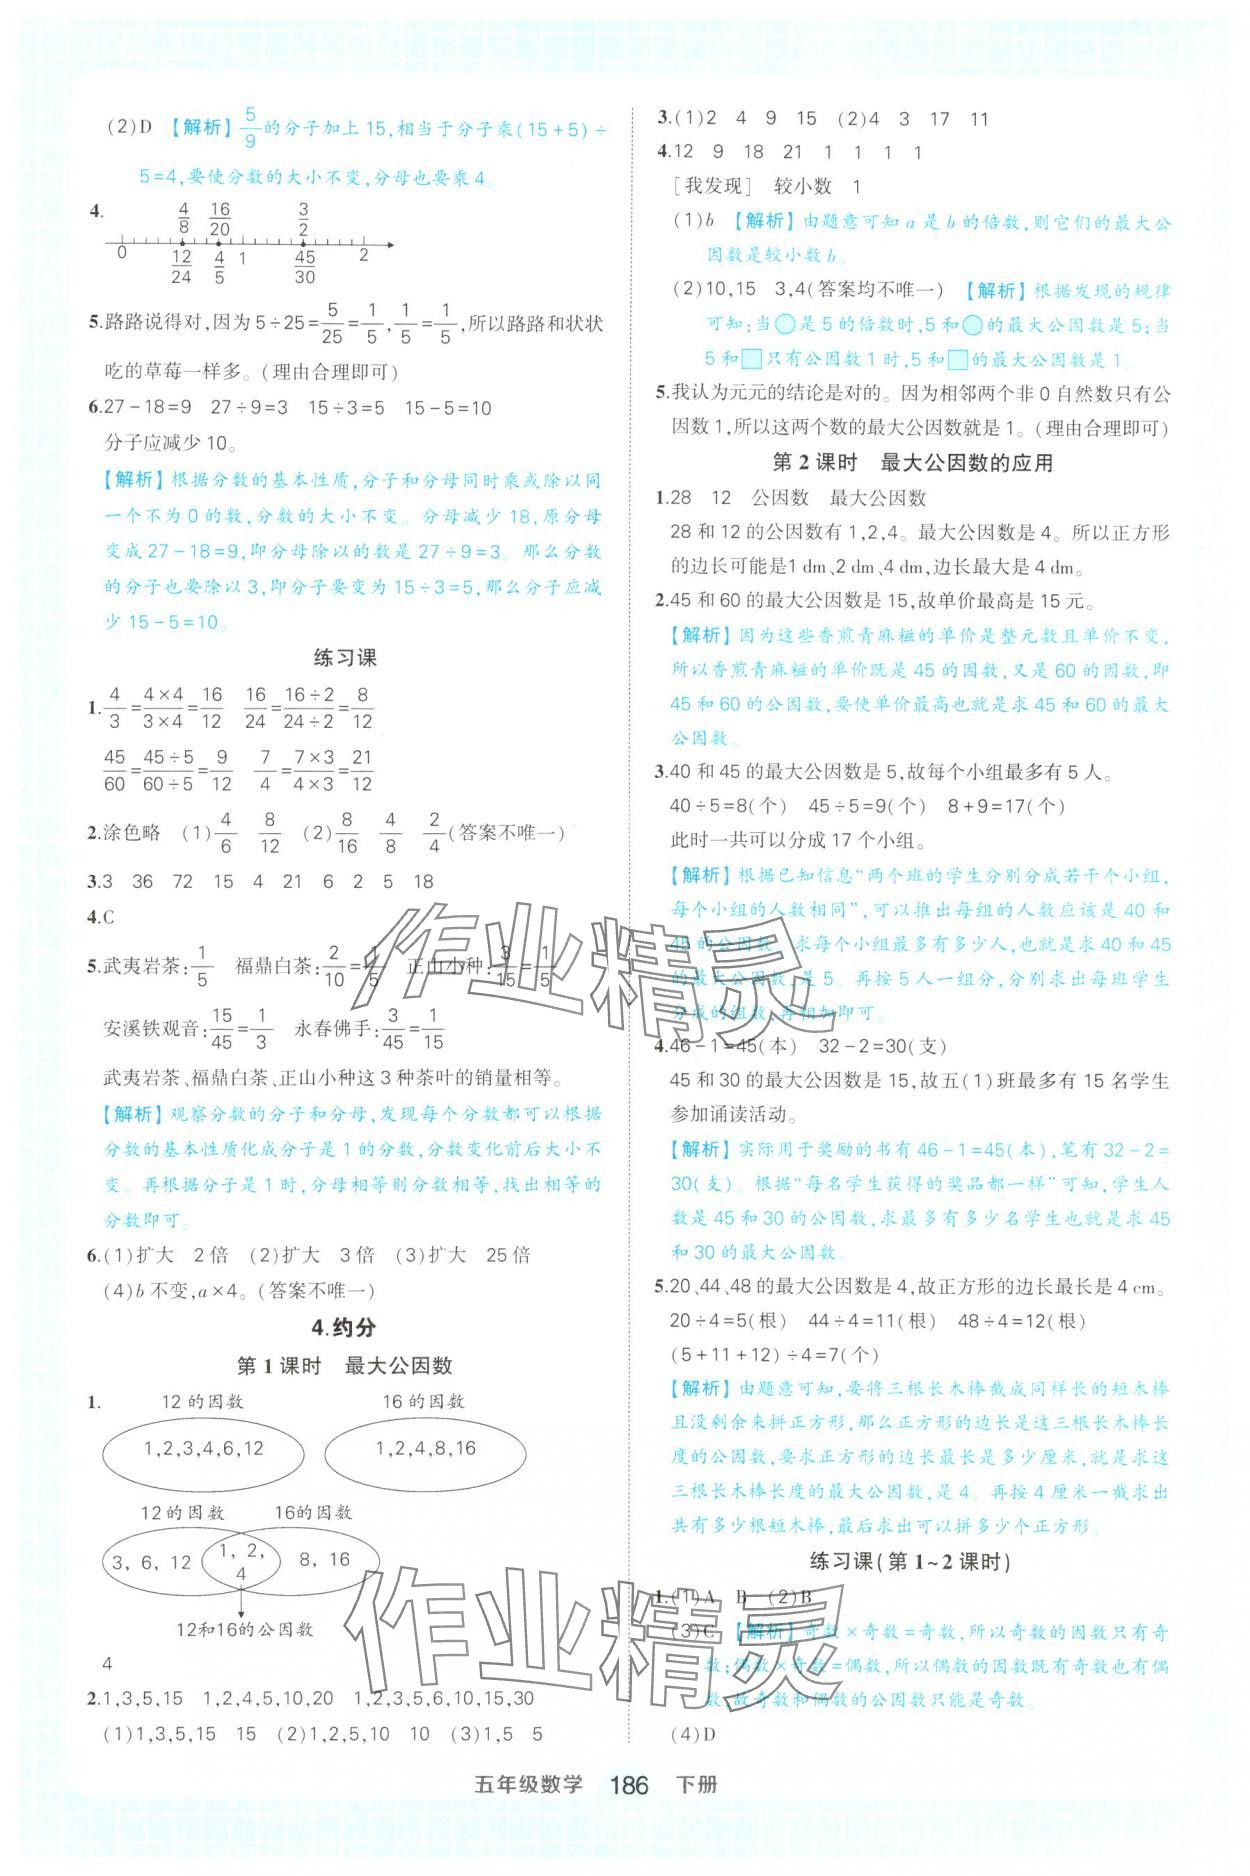 (2)D 【解析】5/9的分子加上15,相当于分子乘(15+5)÷
5=4,要使分数的大小不变,分母也要乘4。
4.
4/8 16/20 3/2
0 1 2
12/24 4/5 45/30
5.路路说得对,因为5÷25=5/25=1/5,1/5=1/5,所以路路和状状
吃的草莓一样多。(理由合理即可)
6.27-18=9 27÷9=3 15÷3=5 15-5=10
分子应减少10。
【解析】根据分数的基本性质,分子和分母同时乘或除以同
一个不为0的数,分数的大小不变。分母减少18,原分母
变成27-18=9,即分母除以的数是27÷9=3。那么分数
的分子也要除以3,即分子要变为15÷3=5,那么分子应减
少15-5=10。
练习课
1.4/3=4×4/3×4=16/12 16/24=16÷2/24÷2=8/12
45/60=45÷5/60÷5=9/12 7/4=7×3/4×3=21/12
2.涂色略 (1)4/6 8/12 (2)8/16 4/8 2/4(答案不唯一)
3.3 36 72 15 4 21 6 2 5 18
4.C
5.武夷岩茶:1/5 福鼎白茶:2/10=1/5 正山小种:3/15=1/5
安溪铁观音:15/45=1/3 永春佛手:3/45=1/15
武夷岩茶、福鼎白茶、正山小种这3种茶叶的销量相等。
【解析】观察分数的分子和分母,发现每个分数都可以根据
分数的基本性质化成分子是1的分数,分数变化前后大小不
变。再根据分子是1时,分母相等则分数相等,找出相等的
分数即可。
6.(1)扩大 2倍 (2)扩大 3倍 (3)扩大 25倍
(4)b不变,a×4。(答案不唯一)
4.约分
第1课时 最大公因数
1. 12的因数 16的因数
1,2,3,4,6,12 1,2,4,8,16
12的因数 16的因数
3, 6, 12 1, 2, 4 8, 16
12和16的公因数
4
2.1,3,5,15 1,2,4,5,10,20 1,2,3,5,6,10,15,30
(1)1,3,5,15 15 (2)1,2,5,10 10 (3)1,5 5
3.(1)2 4 9 15 (2)4 3 17 11
4.12 9 18 21 1 1 1 1
[我发现] 较小数 1
(1)b 【解析】由题意可知a是b的倍数,则它们的最大公
因数是较小数b。
(2)10,15 3,4(答案均不唯一) 【解析】根据发现的规律
可知:当○是5的倍数时,5和○的最大公因数是5;当
5和□只有公因数1时,5和□的最大公因数是1。
5.我认为元元的结论是对的。因为相邻两个非0自然数只有公
因数1,所以这两个数的最大公因数就是1。(理由合理即可)
第2课时 最大公因数的应用
1.28 12 公因数 最大公因数
28和12的公因数有1,2,4。最大公因数是4。所以正方形
的边长可能是1 dm、2 dm、4 dm,边长最大是4 dm。
2.45和60的最大公因数是15,故单价最高是15元。
【解析】因为这些香煎青麻糍的单价是整元数且单价不变,
所以香煎青麻糍的单价既是45的因数,又是60的因数,即
45和60的公因数,要使单价最高也就是求45和60的最大
公因数。
3.40和45的最大公因数是5,故每个小组最多有5人。
40÷5=8(个) 45÷5=9(个) 8+9=17(个)
此时一共可以分成17个小组。
【解析】根据已知信息“两个班的学生分别分成若干个小组,
每个小组的人数相同”,可以推出每组的人数应该是40和
45的公因数,求每个小组最多有多少人,也就是求40和45
的最大公因数,是5。再按5人一组分,分别求出每班学生
分成的组数,再相加即可。
4.46-1=45(本) 32-2=30(支)
45和30的最大公因数是15,故五(1)班最多有15名学生
参加诵读活动。
【解析】实际用于奖励的书有46-1=45(本),笔有32-2=
30(支)。根据“每名学生获得的奖品都一样”可知,学生人
数是45和30的公因数,求最多有多少名学生也就是求45
和30的最大公因数。
5.20、44、48的最大公因数是4,故正方形的边长最长是4 cm。
20÷4=5(根) 44÷4=11(根) 48÷4=12(根)
(5+11+12)÷4=7(个)
【解析】由题意可知,要将三根长木棒截成同样长的短木棒
且没剩余来拼正方形,那么正方形的边长是这三根长木棒长
度的公因数,要求正方形的边长最长是多少厘米,就是求这
三根长木棒长度的最大公因数,是4。再按4厘米一截求出
共有多少根短木棒,最后求出可以拼多少个正方形。
练习课(第1~2课时)
1.(1)A B (2)B
(3)C 【解析】奇数×奇数=奇数,所以奇数的因数只有奇
数;偶数×奇数=偶数,所以偶数的因数既有奇数也有偶
数,故奇数和偶数的公因数只能是奇数。
(4)D
作业精灵
作业精灵
五年级数学 186 下册